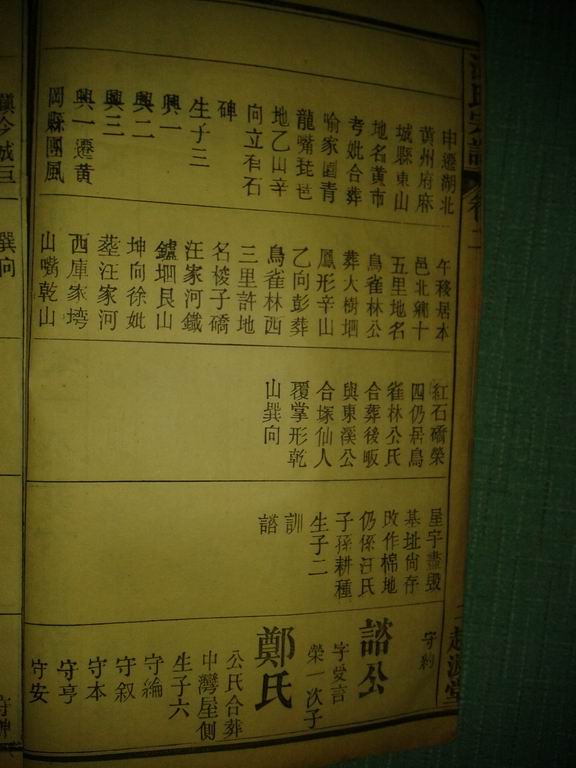 汪氏宗譜
卷二
申遷湖北
黃州府麻
城縣東山
地名黃市
考妣合葬
喻家園青
龍嘴琵琶
地乙山辛
向立有石
碑
生子三
興一
興二
興三
興一遷黃
岡縣團風
午移居本
邑北鄉十
五里地名
鳥雀林公
葬大樹垇
鳳形辛山
乙向彭葬
鳥雀林西
三里許地
名棱子礄
汪家河鐵
鑪垇艮山
坤向徐妣
塟汪家河
西庫家塆
山嘴乾山
紅石礄榮
四仍居鳥
雀林公氏
合葬後畈
與東溪公
合塚仙人
覆掌形乾
山巽向
屋宇盡毀
基址尚存
改作棉地
仍係汪氏
子孫耕種
生子二
訓
諮
守約
諮公
字愛言
榮一次子
鄭氏
公氏合葬
中灣屋側
生子六
守綸
守叙
守本
守亨
守安
巽向